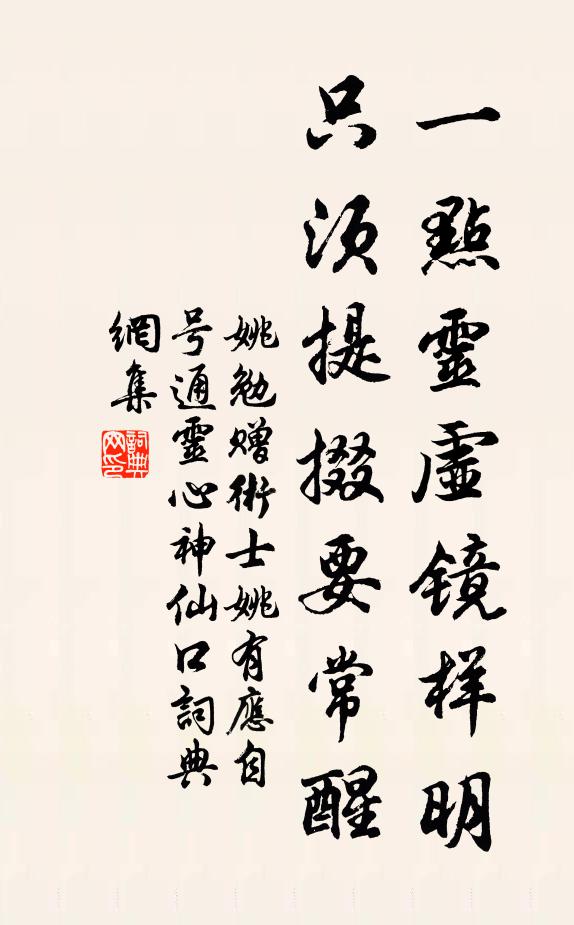 一點靈虛镜样明
只须提掇要常醒
姚勉赠術士姚有應自
号通靈心神仙口詞典
網集
詞典网印